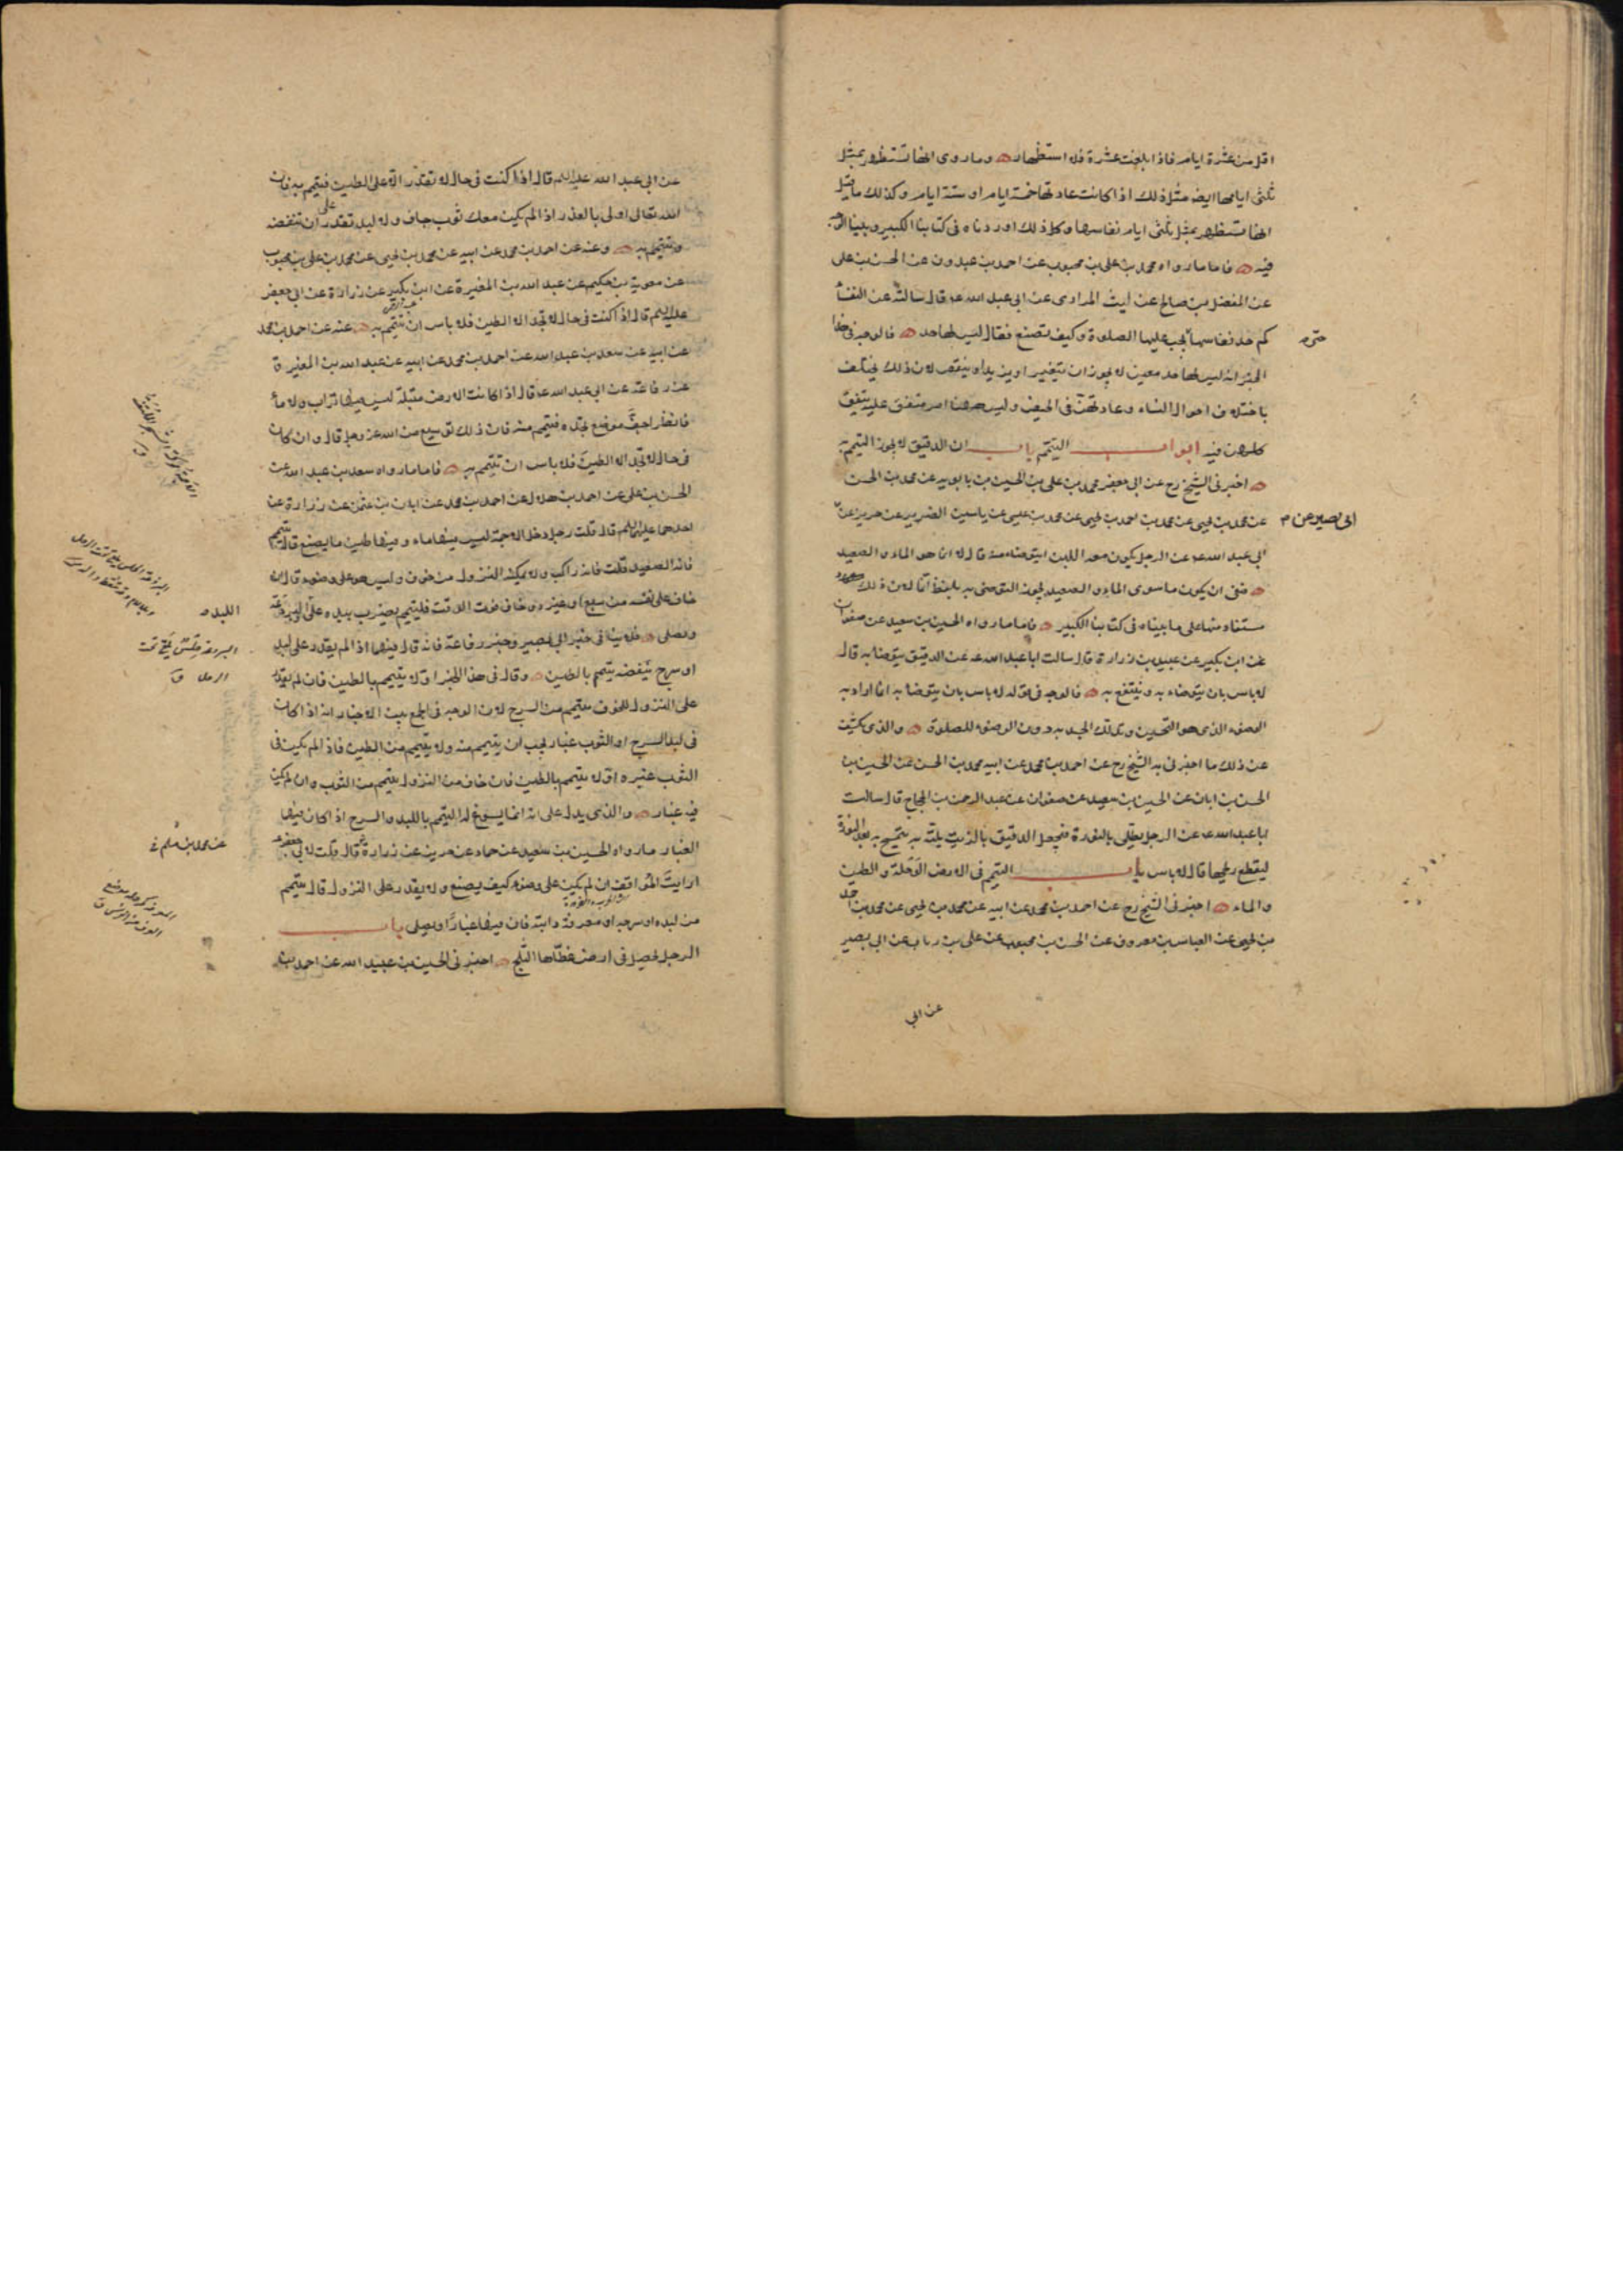 اقل من عشرة ايام فاذا بلغت عشرة فلا استظهار وما روى انها تستظهر بمثل
ثلثى ايامها ايضا مثل ذلك اذا كانت عادتها خمسة ايام او ستة ايام وكذلك ما قيل
انها تستظهر بمثل ثلثى ايام نفاسها وكل ذلك اوردناه فى كتابنا الكبير وبينا الوجه
فيه فاما ما رواه محمد بن على بن محبوب عن احمد بن عبدون عن الحسن بن على
عن المفضل بن صالح عن ليث المرادى عن ابى عبد الله ع قال سالته عن النفسأ
كم حد نفاسها يجب عليها الصلوة وكيف تصنع فقال ليس لها حد فالوجه فى هذا
حتى
الخبر انه ليس لها حد معين لا يجوز ان يتغير او يزيد او ينقص لان ذلك يختلف
باختلاف احوال النساء وعادتهن فى الحيض وليس ههنا امر متفق عليه يتفق
كلهن فيه ابواب التيمم باب ان الدقيق لا يجوز التيمم به
اخبرنى الشيخ رح عن ابى جعفر محمد بن على بن الحسين بن بابويه عن محمد بن الحسن
عن محمد بن يحيى عن محمد بن احمد بن يحيى عن محمد بن عيسى عن ياسين الضرير عن حريز عن
ابى بصير عن
ابى عبد الله ع عن الرجل يكون معه اللبن ايتوضا منه قال لا انما هو الماء والصعيد
فنفى ان يكون ما سوى الماء والصعيد يجوز التوضى به بلفظ انما لان ذلك
مستفاد منها على ما بيناه فى كتابنا الكبير فاما ما رواه الحسين بن سعيد عن صفوان
عن ابن بكير عن عبيد بن زرارة قال سالت ابا عبد الله ع عن الدقيق يتوضا به قال
لا باس بان يتوضاء به وينتفع به فالوجه فى قوله لا باس بان يتوضا به انما اراد به
الوضوء الذى هو التحسين وتدلك الجسد به دون الوضوء للصلوة والذى يكشف
عن ذلك ما اخبرنى به الشيخ رح عن احمد بن محمد عن ابيه محمد بن الحسن عن الحسين بن
الحسن بن ابان عن الحسين بن سعيد عن صفوان عن عبد الرحمن بن الحجاج قال سالت
ابا عبد الله ع عن الرجل يطلى بالنورة فيجعل الدقيق بالزيت يلته به يتمسح به بعد النورة
ليقطع ريحها قال لا باس باب التيمم فى الارض الوحلة والطين
والماء اخبرنى الشيخ رح عن احمد بن محمد عن ابيه عن محمد بن يحيى عن محمد بن احمد
بن يحيى عن العباس بن معروف عن الحسن بن محبوب عن على بن رياب عن ابى بصير
عن ابى
عن ابى عبد الله عليه السلم قال اذا كنت فى حال لا تقدر الا على الطين فتيمم به فان
الله تعالى اولى بالعذر اذا لم يكن معك ثوب جاف ولا لبد تقدر على ان تنفضه
وتتيمم به وعنه عن احمد بن محمد عن ابيه عن محمد بن يحيى عن محمد بن على بن محبوب
عن معوية بن حكيم عن عبد الله بن المغيرة عن ابن بكير عن زرارة عن ابى جعفر
عليه السلم قال اذا كنت فى حال لا تجد الا الطين فلا باس ان تتيمم به عنه عن احمد بن محمد
عن ابيه عن سعد بن عبد الله عن احمد بن محمد عن ابيه عن عبد الله بن المغيرة
عن رفاعة عن ابى عبد الله ع قال اذا كانت الارض مبتلة ليس فيها تراب ولا مأ
فانظر اجف موضع تجده فتيمم منه فان ذلك توسيع من الله عز وجل قال وان كان
فى حال لا تجد الا الطين فلا باس ان تتيمم به فاما ما رواه سعد بن عبد الله عن
الحسن بن على عن احمد بن هلال عن احمد بن محمد عن ابان بن عثمن عن زرارة عن
احدهما عليهما السلم قال قلت رجل دخل الاجمة ليس فيها ماء وفيها طين ما يصنع قال يتيمم
فانه الصعيد قلت فانه راكب ولا يمكنه النزول من خوف وليس هو على وضوء قال ان
خاف على نفسه من سبع او غيره وخاف فوت الوقت فليتيمم يضرب بيده على اللبد والبرذعة
ويصلى فلا ينافى خبر ابى بصير وخبر رفاعة فانه قال فيهما اذا لم يقدر على لبد
او سرج ينفضه يتيمم بالطين وقال فى هذا الخبر اولا يتيمم بالطين فان لم يقدر
على النزول للخوف يتيمم من السرج لان الوجه فى الجمع بين الاخبار انه اذا كان
فى لبد السرج او الثوب غبار يجب ان يتيمم منه ولا يتيمم من الطين فاذا لم يكن فى
الثوب غبره اولا يتيمم بالطين فان خاف من النزول يتيمم من الثوب وان لم يكن
فيه غبار والذى يدل على انه انما يسوغ له التيمم باللبد والسرج اذا كان فيها
الغبار ما رواه الحسين بن سعيد عن حماد عن حريز عن زرارة قال قلت لابى جعفر ع
عن محمد بن مسلم
ارايت المواقف ان لم يكن على وضوء كيف يصنع ولا يقدر على النزول قال يتيمم
من لبده او سرجه او معرفة دابته فان فيها غبارا ويصلى باب
الرجل يحصل فى ارض غطاها الثلج اخبرنى الحسين بن عبيد الله عن احمد بن